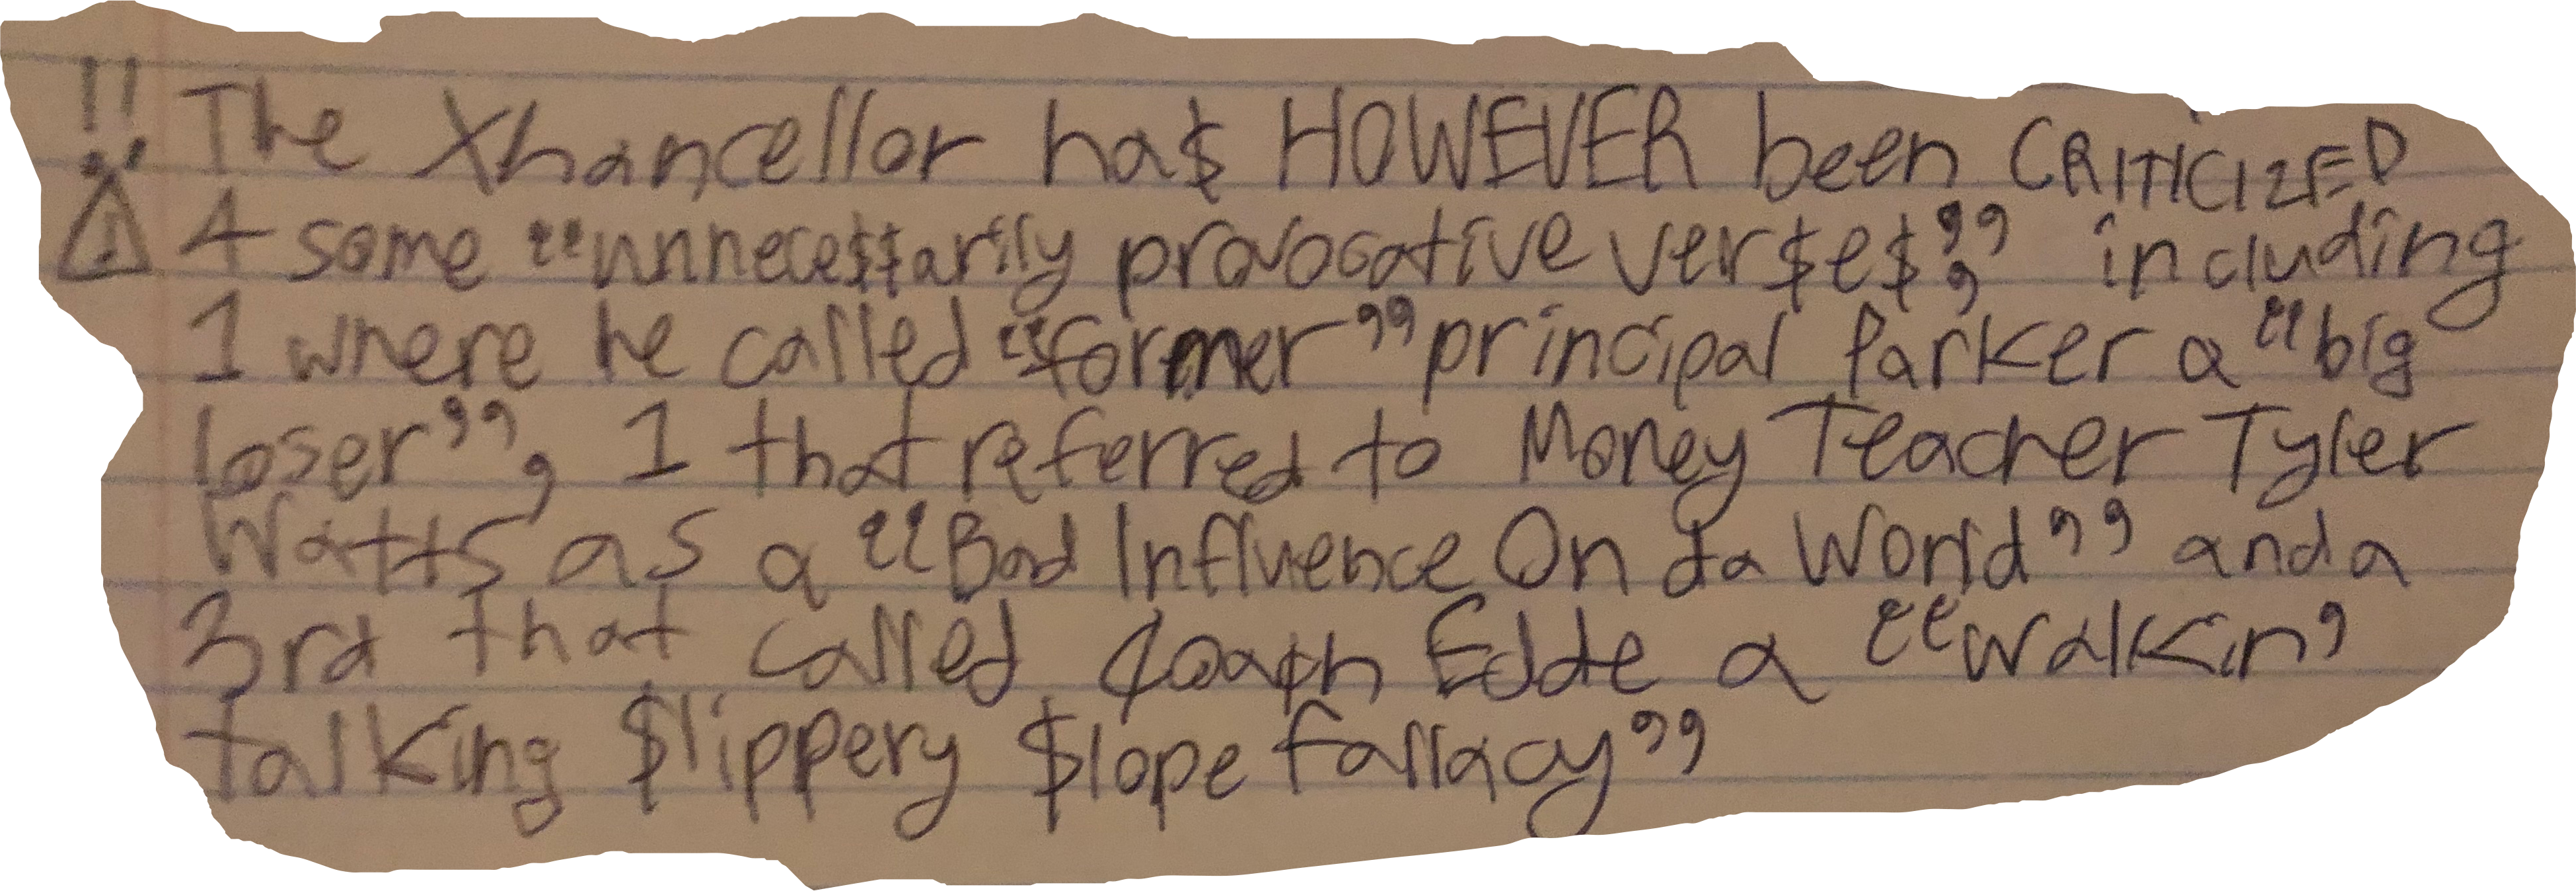 !! The Xhancellor ha$ HOWEVER been CRITICIZED
⚠ 4 some “unnece$$arily provocative ver$e$”, including
1 where he called “former” principal Parker a “big
loser”, 1 that referred to Money Teacher Tyler
Watts as a “Bad Influence On da World” and a
3rd that called ¢oa¢h Edde a “walkin’
talking $lippery $lope fallacy”